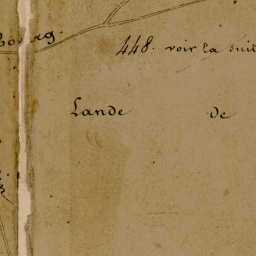 Bourg.
448. voir la suit
Lande de